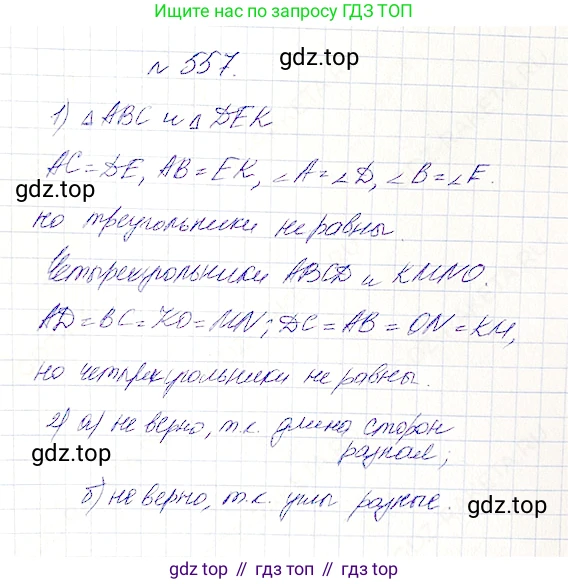 Ищите нас по запросу ГДЗ ТОП
№ 557.
gdz.top
1) △ ABC и △ DEK
AC = DE, AB = EK, ∠A = ∠D, ∠B = ∠E.
gdz.top
но треугольники не равны.
Четырехугольники ABCD и KMNO.
AD = BC = KO = MN; DC = AB = ON = KM,
но четырехугольники не равны.
2) а) не верно, т.к. длина сторон
gdz.top
разная;
б) не верно, т.к. углы разные.
gdz.top
gdz.top // gdz.top // gdz.top